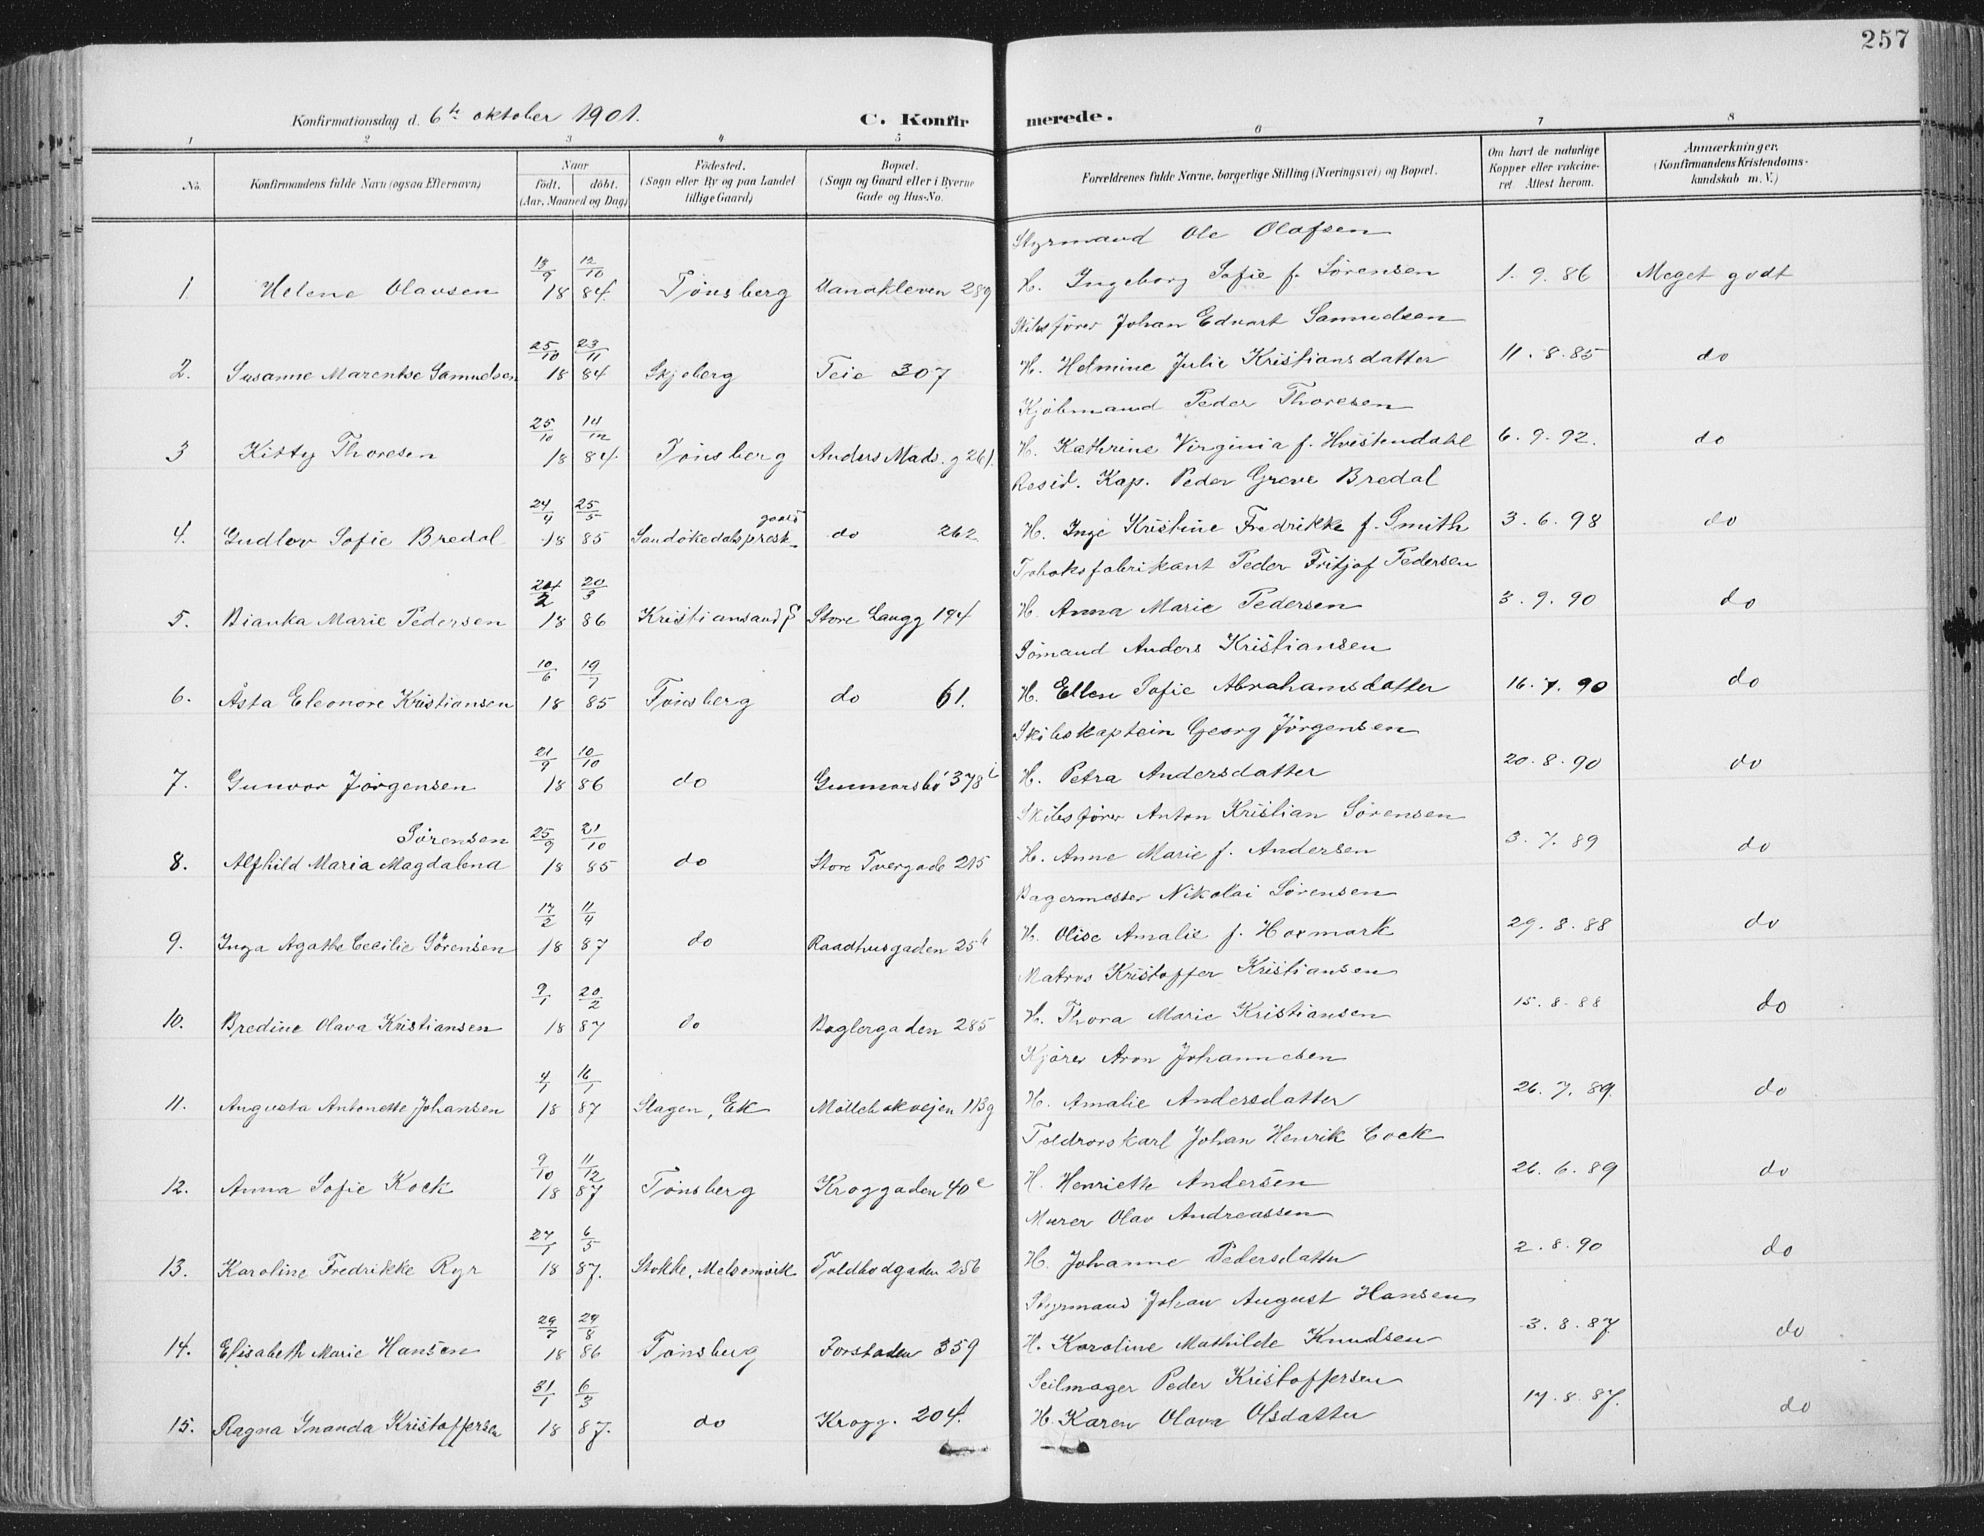 257
Konfirmationsdag d. 6te oktober 1901.
C. Konfirmerede.
1 2 3 4 5 6 7 8
No.
Konfirmandens fulde Navn (ogsaa Efternavn)
Naar
født. døbt.
(Aar, Maaned og Dag)
Fødested.
(Sogn eller By og paa Landet
tillige Gaard)
Bopæl.
(Sogn og Gaard eller i Byerne
Gade og Hus-No.
Forældrenes fulde Navne, borgerlige Stilling (Næringsvei) og Bopæl.
Om havt de naturlige
Kopper eller vakcine-
ret. Attest herom.
Anmærkninger.
(Konfirmandens Kristendoms-
kundskab m. V.)
Styrmand Ole Olafsen
13/9 12/10
1. Helene Olavsen 18 84. Tønsberg 289 H. Ingeborg Sofie f. Sørensen 1. 9. 86 Meget godt
Skibsfører Johan Edvart Samuelsen
25/10 23/11
2. Susanne Marentse Samuelsen 18 84 Skjeberg Teie 307 H. Helmine Julie Kristiansdatter 11. 8. 85 do
Kjøbmand Peder Thoresen
25/10 14/12
3 Kitty Thoresen 18 84. Tønsberg Anders Mads. g 261. H. Kathrine Virginia f. Hvistendahl 6. 9. 92. do
Resid. Kap. Peder Greve Bredal
24/4 25/5 gaard
4. Gudlov Sofie Bredal 18 85 Sandökedals prest- do 262 H. Inge Kristine Fredrikke f. Smith 3. 6. 98 do
Tobaksfabrikant Peder Fritjof Pedersen
2 20/3
5. Bianka Marie Pedersen 18 86 Kristiansand Store Langg 194 H. Anna Marie Pedersen 3. 9. 90 do
Sömand Anders Kristiansen
10/6 19/7
6. Åsta Eleonore Kristiansen 18 85 Tønsberg do 61. H. Ellen Sofie Abrahamsdatter 16. 7. 90 do
Skibskaptein Georg Jörgensen
21/9 10/10
7. Gunvor Jörgensen 18 86 do Gunnarsbö 378 H. Petra Andersdatter 20. 8. 90 do
Skibsfører Anton Kristian Sørensen
Sörensen 25/9 21/10
8. Alfhild Maria Magdalena 18 85 do Store Tvergade 215 H. Anne Marie f. Andersen 3. 7. 89 do
Bagermester Nikolai Sörensen
17/2 11/4
9. Inga Agathe Cecilie Sörensen 18 87 do Raadhusgaden 25 H. Olise Amalie f. Hoxmark 29. 8. 88 do
Matros Kristoffer Kristiansen
9/1 20/2
10. Bredine Olava Kristiansen 18 87 do Baglergaden 285 H. Thora Marie Kristiansen 15. 8. 88 do
Kjører Aron Johannesen
4/1 16/1
11. Augusta Antonette Johansen 18 87 Slagen, Ek Möllebakvejen 113g H. Amalie Andersdatter 26. 7. 89. do
Toldrorskarl Johan Henrik Cock
9/10 11/12
12. Anna Sofie Kock 18 87 Tønsberg Kroggaden 40 c H. Henriette Andersen 26. 6. 89 do
Murer Olav Andreassen
27/1 6/5
13. Karoline Fredrikke Ryr 18 87. Stokke, Melsomvik Toldbodgaden 256 H. Johanne Pedersdatter 2. 8. 90 do
Styrmand Johan August Hansen
29/7 29/8
14. Elisabeth Marie Hansen 18 86 Tønsberg Forstaden 359 H. Karoline Mathilde Knudsen 3. 8. 87 do
Seilmager Peder Kristoffersen
31/1 6/3
15. Ragna Ynanda Kristoffersen 18 87. do Krogg. 204. H. Karen Olava Olsdatter 17. 8. 87. do